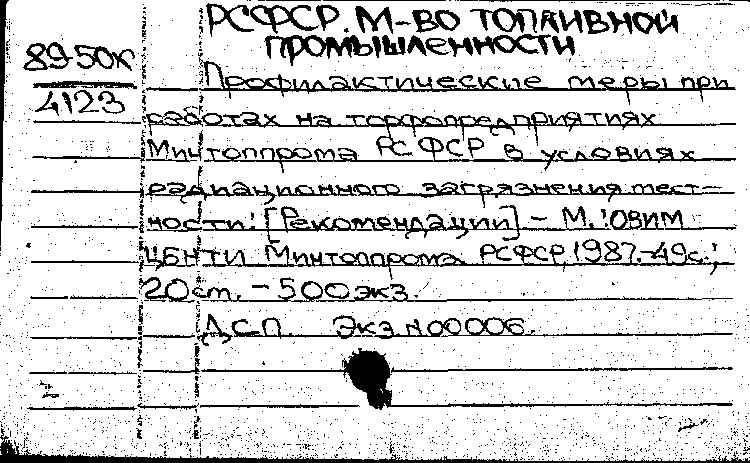 РСФСР. М-ВО ТОПЛИВНОЙ
ПРОМЫШЛЕННОСТИ
89-50К
4123
Профилактические меры при
работах на торфопредприятиях
Минтоппрома РСФСР в условиях
радиационного загрязнения мест-
ности: [Рекомендации] - М.: ОВИМ
ЦБНТИ Минтоппрома РСФСР, 1987.-49с.;
20 см. - 500 экз.
ДСП. Экз. N 00006.